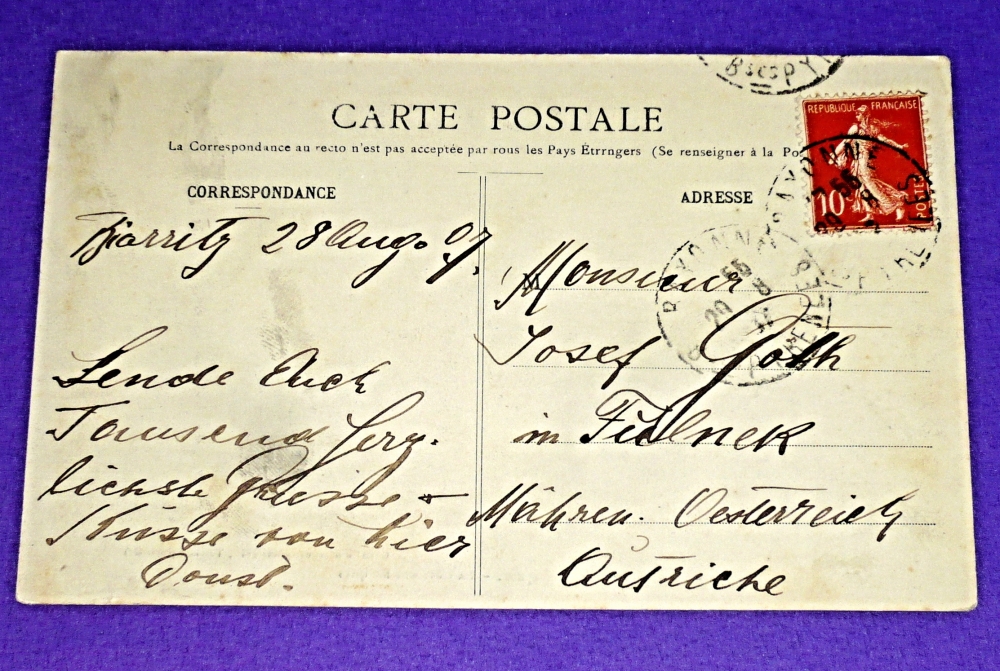 CARTE POSTALE
La Correspondance au recto n'est pas acceptée par tous les Pays Etrrngers (Se renseigner à la Po
CORRESPONDANCE
ADRESSE
REPUBLIQUE FRANÇAISE
10
POSTES
BAYONNE
BAYONNE
PYRENEES
Bses PY
Biarritz 28 Aug. 07.
Sende Euch
Tausend herz-
lichste Grüsse +
Küsse von hier
Monsieur
Josef Goth
in Fulnek
Mähren. Oesterreich
Autriche